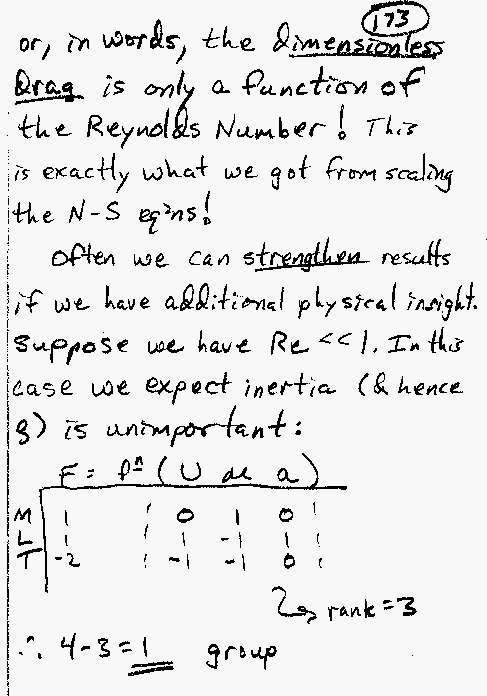 173
or, in words, the dimensionless
Drag is only a function of
the Reynolds Number! This
is exactly what we got from scaling
the N-S eq'ns!
Often we can strengthen results
if we have additional physical insight.
Suppose we have Re << 1. In this
case we expect inertia (& hence
ρ) is unimportant:
F = fⁿ (U μ a)
M 1 0 1 0
L 1 1 -1 1
T -2 -1 -1 0
↳ rank = 3
∴ 4-3 = 1 group